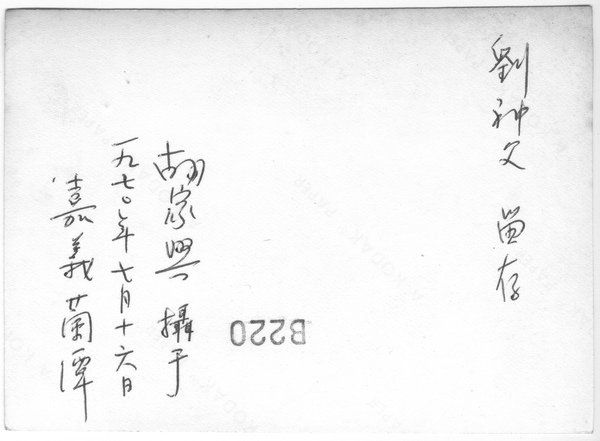 劉神父 留存
胡家興 攝于
一九七〇年七月十六日
嘉義蘭潭
B220